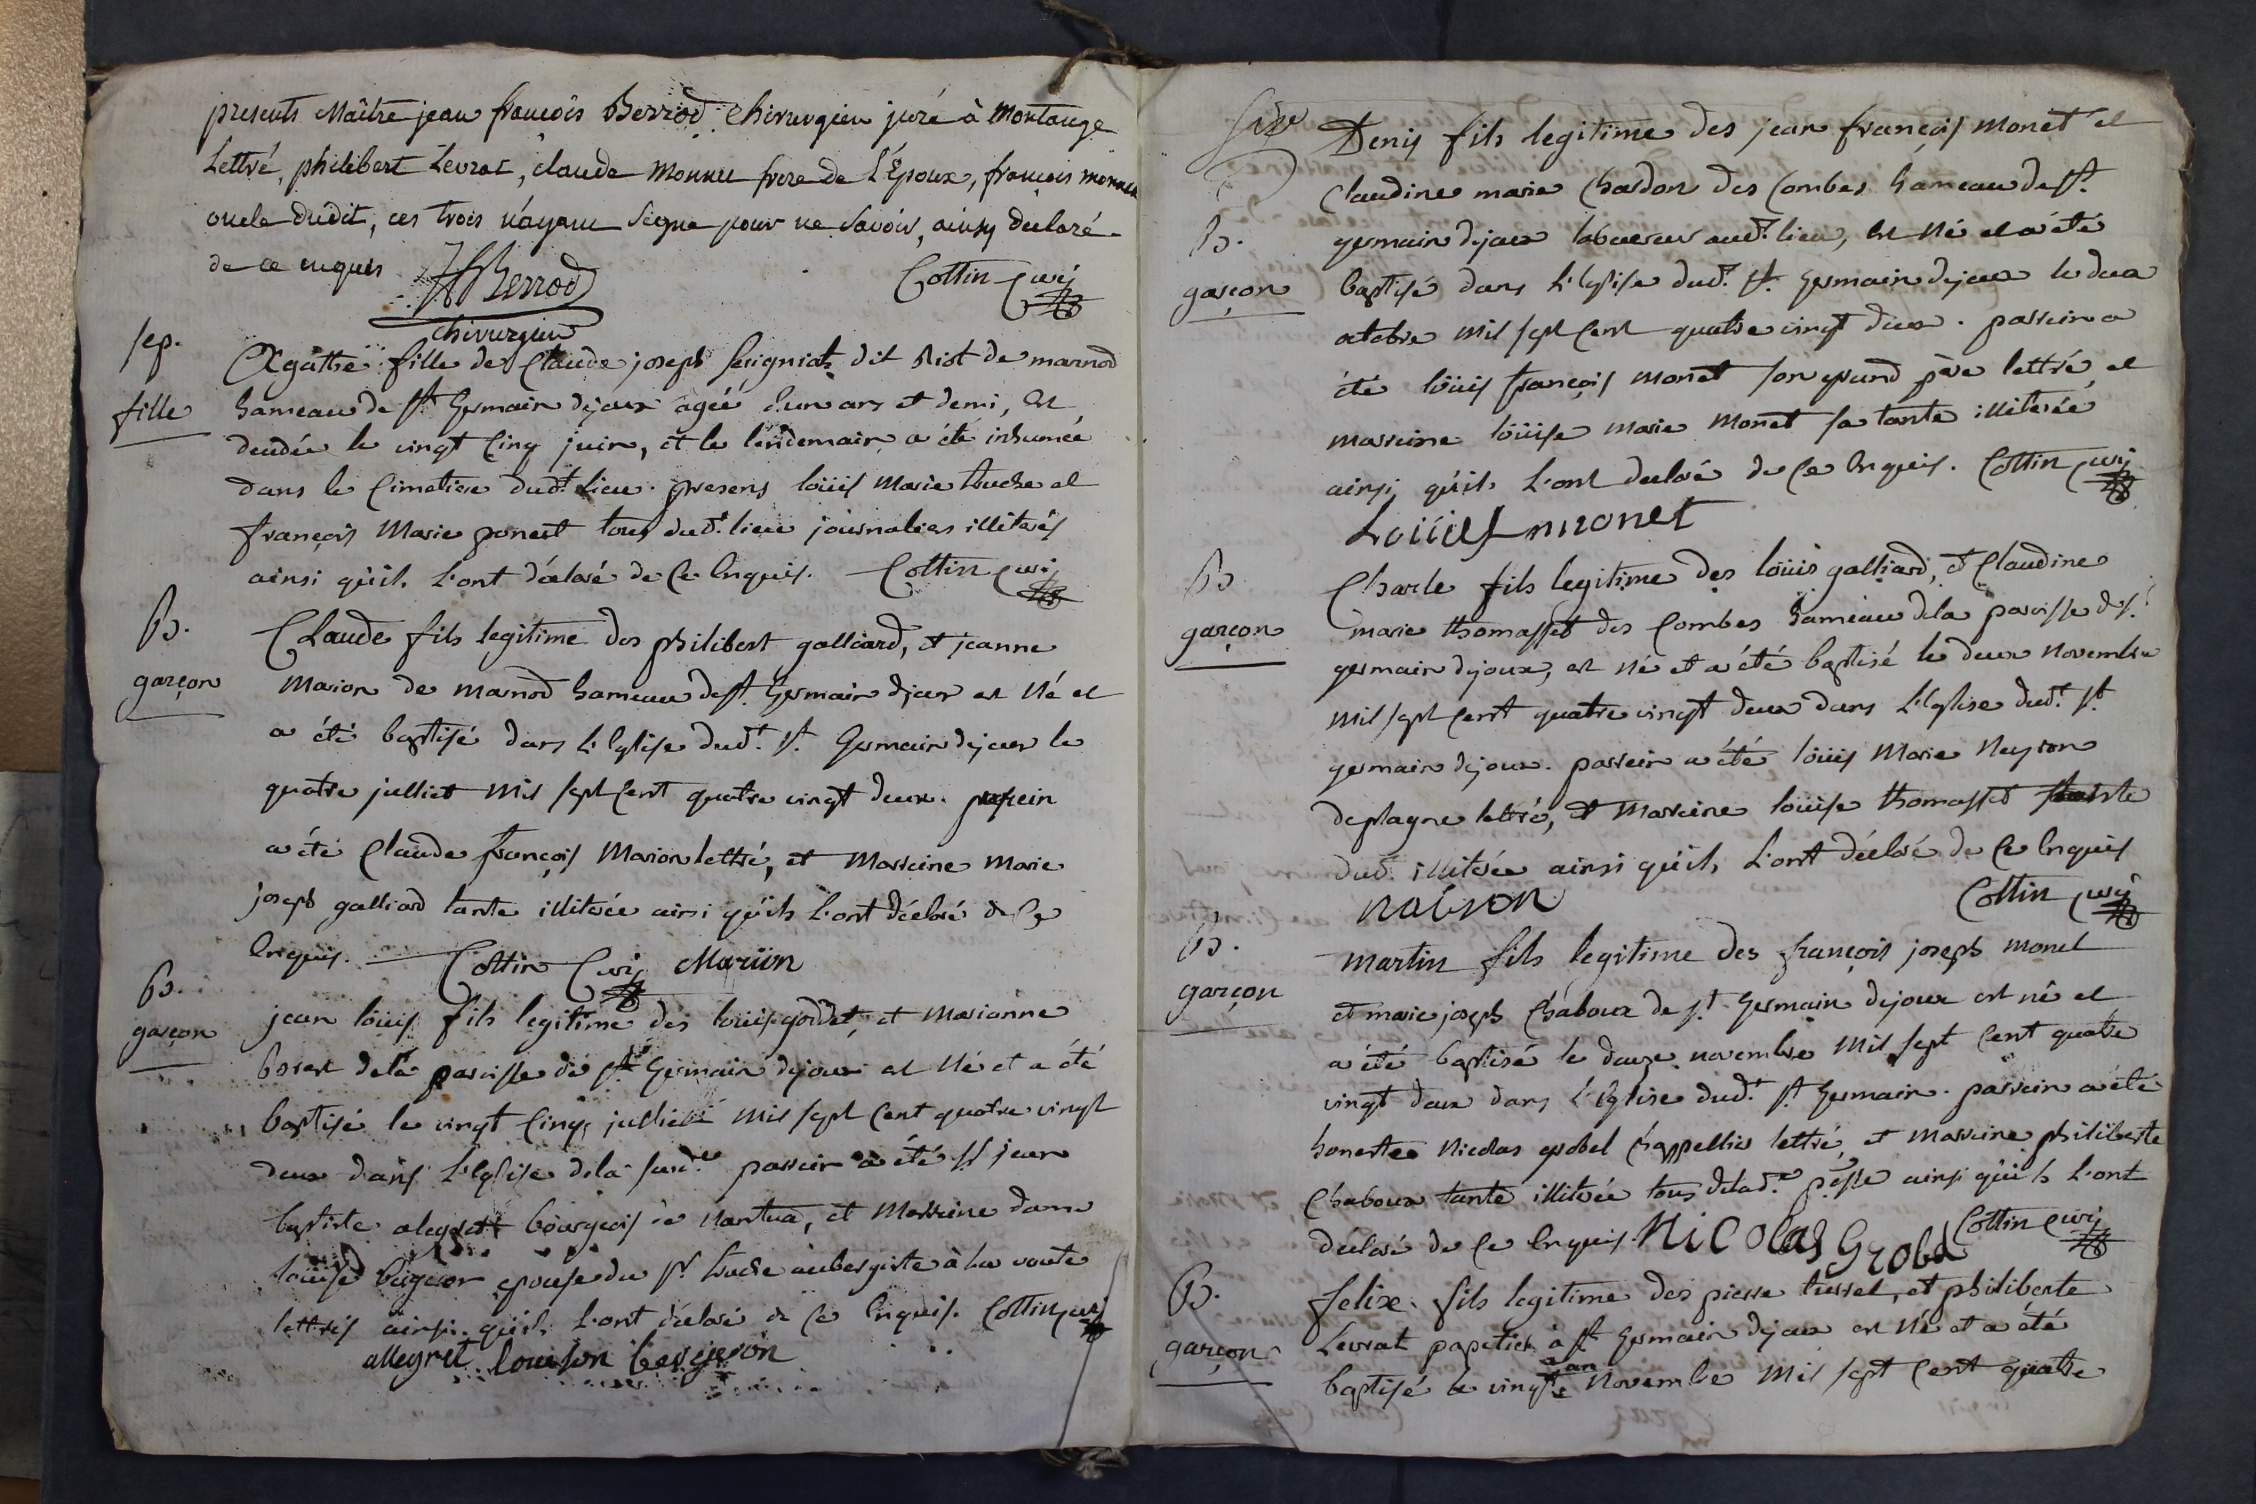 presents Maître jean françois Berrod Chirurgien juré à Montange
Lettré, philibert Levrat, claude monnet frere de l'Epoux, françois monnet
oncle dudit, ces trois n'ayant signé pour ne savoir, ainsy declaré
de ce enquis JfBerrod Cottin Curé
chirurgien
sep.
fille
Agathe fille de Claude joseph dit Riot de marnod
hameau de st Germain dejoux agée d'un ans et demi, est
decedée le vingt cinq juin, et le lendemain a été inhumée
dans le Cimetiere dudt. lieu. presens loüis Marie Tuche et
françois Marie ponset tous dudt. lieu journaliers illiterés
ainsi qu'ils l'ont déclaré de ce Enquis. Cottin Curé
B.
garçon
Claude fils legitime des philibert galliard, et jeanne
Marion de marnod hameau de st. Germain dejoux est Né et
a été baptisé dans l'Eglise dudt. st. Germain dejoux le
quatre julliet Mil sept Cent quatre vingt deux. parrein
a été Claude françois Marion lettré, et Marreine Marie
joseph galliard tante illiterée ainsi qu'ils l'ont déclaré de ce
Enquis. Cottin Curé Mariion
B.
garçon
jean loüis fils legitime des loüis goddet, et Marianne
de la paroisse de st Germain dejoux est Né et a été
baptisé le vingt Cinq julliet mil sept Cent quatre vingt
deux dans l'Eglise de la susde. parrein a été sr jean
baptiste alegret bourgeois de Nantua, et Marreine dame
loüise epouse du sr. Tuche aubergiste à la voute
lettrés ainsi qu'ils l'ont déclaré de ce Enquis. Cottin Curé
allegret louison bergeron
B.
garçon
Denis fils legitime des jean françois monet et
Claudine marie Chardon des Combes hameau de st.
germain dejoux laboureur audt. lieu, est Né et a été
baptisé dans l'Eglise dudt. st. Germain dejoux le deux
octobre Mil sept Cent quatre vingt deux. parrein a
été loüis françois monet son grand père lettré, et
marreine loüise marie Monet sa tante illiterée
ainsi qu'ils l'ont declaré de ce Enquis. Cottin Curé
Loiiies monet
B
garçon
Charle fils legitime des loüis galliard, et Claudine
marie thomasset des Combes hameau dela paroisse de st.
germain dejoux, est Né et a été baptisé le deux Novembre
Mil sept Cent quatre vingt deux dans l'Eglise dudt. st.
germain dejoux. parrein a été loüis Marie Neyron
deplagne lettré, et Marreine loüise thomasset tante
dudt. illiterée ainsi qu'ils l'ont déclaré de ce Enquis
Cottin Curé
B.
garçon
Martin fils legitime des françois joseph monet
et marie joseph Chaboux de st. Germain dejoux est né et
a été baptisé le douze novembre Mil sept Cent quatre
vingt deux dans l'Eglise dudt. st. Germain. parrein a été
honorte Nicolas grobel Chappellier lettré, et Marreine philiberte
Chaboux tante illiterée tous delade. psse ainsi qu'ils l'ont
declaré de ce Enquis. NiColas Grobel Cottin Curé
B.
garçon
felix fils legitime des pierre tissot, et philiberte
Levrat papetier à st Germain dejoux est Né et a été
baptisé le vingt Novembre Mil sept Cent quatre